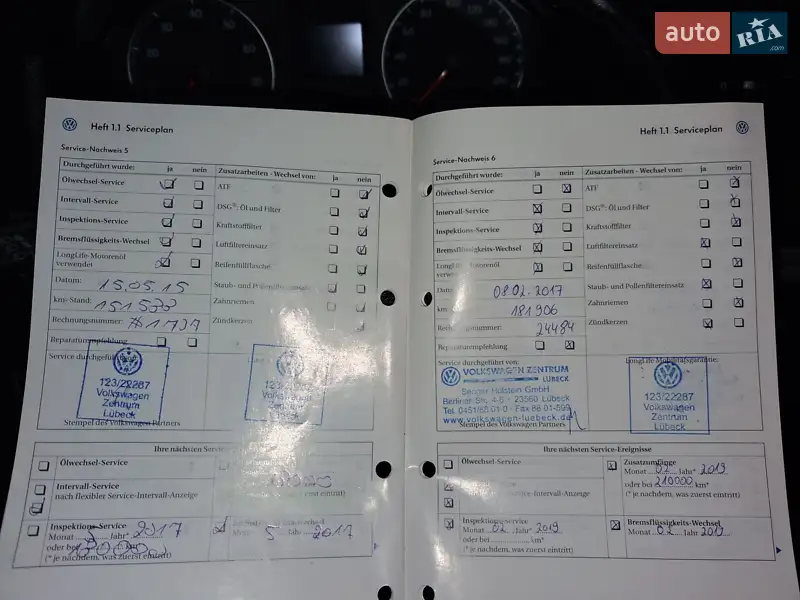 auto RIA .com
Heft 1.1 Serviceplan
Service-Nachweis 5
Durchgeführt wurde: ja nein
Ölwechsel-Service
Intervall-Service
Inspektions-Service
Bremsflüssigkeits-Wechsel
LongLife-Motorenöl
verwendet
Datum: 15.05.15
km-Stand:
Rechnungsnummer:
Reparaturempfehlung
Service durchgeführt
Zusatzarbeiten - Wechsel von: ja nein
ATF
DSG®: Öl und Filter
Kraftstofffilter
Luftfiltereinsatz
Reifenfüllflasche
Staub- und Pollenfiltereinsatz
Zahnriemen
Zündkerzen
123/22287
Volkswagen
Zentrum
Lübeck
Stempel des Volkswagen Partners
Ihre nächsten Service
Ölwechsel-Service
Intervall-Service
nach flexibler Service-Intervall-Anzeige
Inspektions-Service
Monat 5 Jahr* 2017
oder bei
(* je nachdem, was zuerst eintritt)
5 2017
Heft 1.1 Serviceplan
Service-Nachweis 6
Durchgeführt wurde: ja nein
Ölwechsel-Service
Intervall-Service
Inspektions-Service
Bremsflüssigkeits-Wechsel
LongLife-Motorenöl
verwendet
08.02.2017
km 181906
24484
Reparaturempfehlung
Service durchgeführt von:
Zusatzarbeiten - Wechsel von: ja nein
ATF
DSG®: Öl und Filter
Kraftstofffilter
Luftfiltereinsatz
Reifenfüllflasche
Staub- und Pollenfiltereinsatz
Zahnriemen
Zündkerzen
LongLife Mobilitätsgarantie:
VOLKSWAGEN ZENTRUM
LÜBECK
Holstein GmbH
Berliner Str. 23560 Lübeck
www.volkswagen-luebeck.de
Stempel des Volkswagen Partners
123/22287
Volkswagen
Zentrum
Lübeck
Ihre nächsten Service-Ereignisse
Ölwechsel-Service
Service-Intervall-Anzeige
Inspektions-Service
Monat 02 Jahr* 2019
oder bei km*
(* je nachdem, was zuerst eintritt)
Zusatzumfänge
Monat 02 Jahr* 2019
oder bei 210000 km*
(* je nachdem, was zuerst eintritt)
Bremsflüssigkeits-Wechsel
Monat 02 Jahr 2019